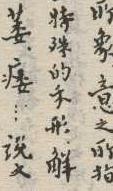 的象意之所指
特殊的禾形.解
萎.痿…說文